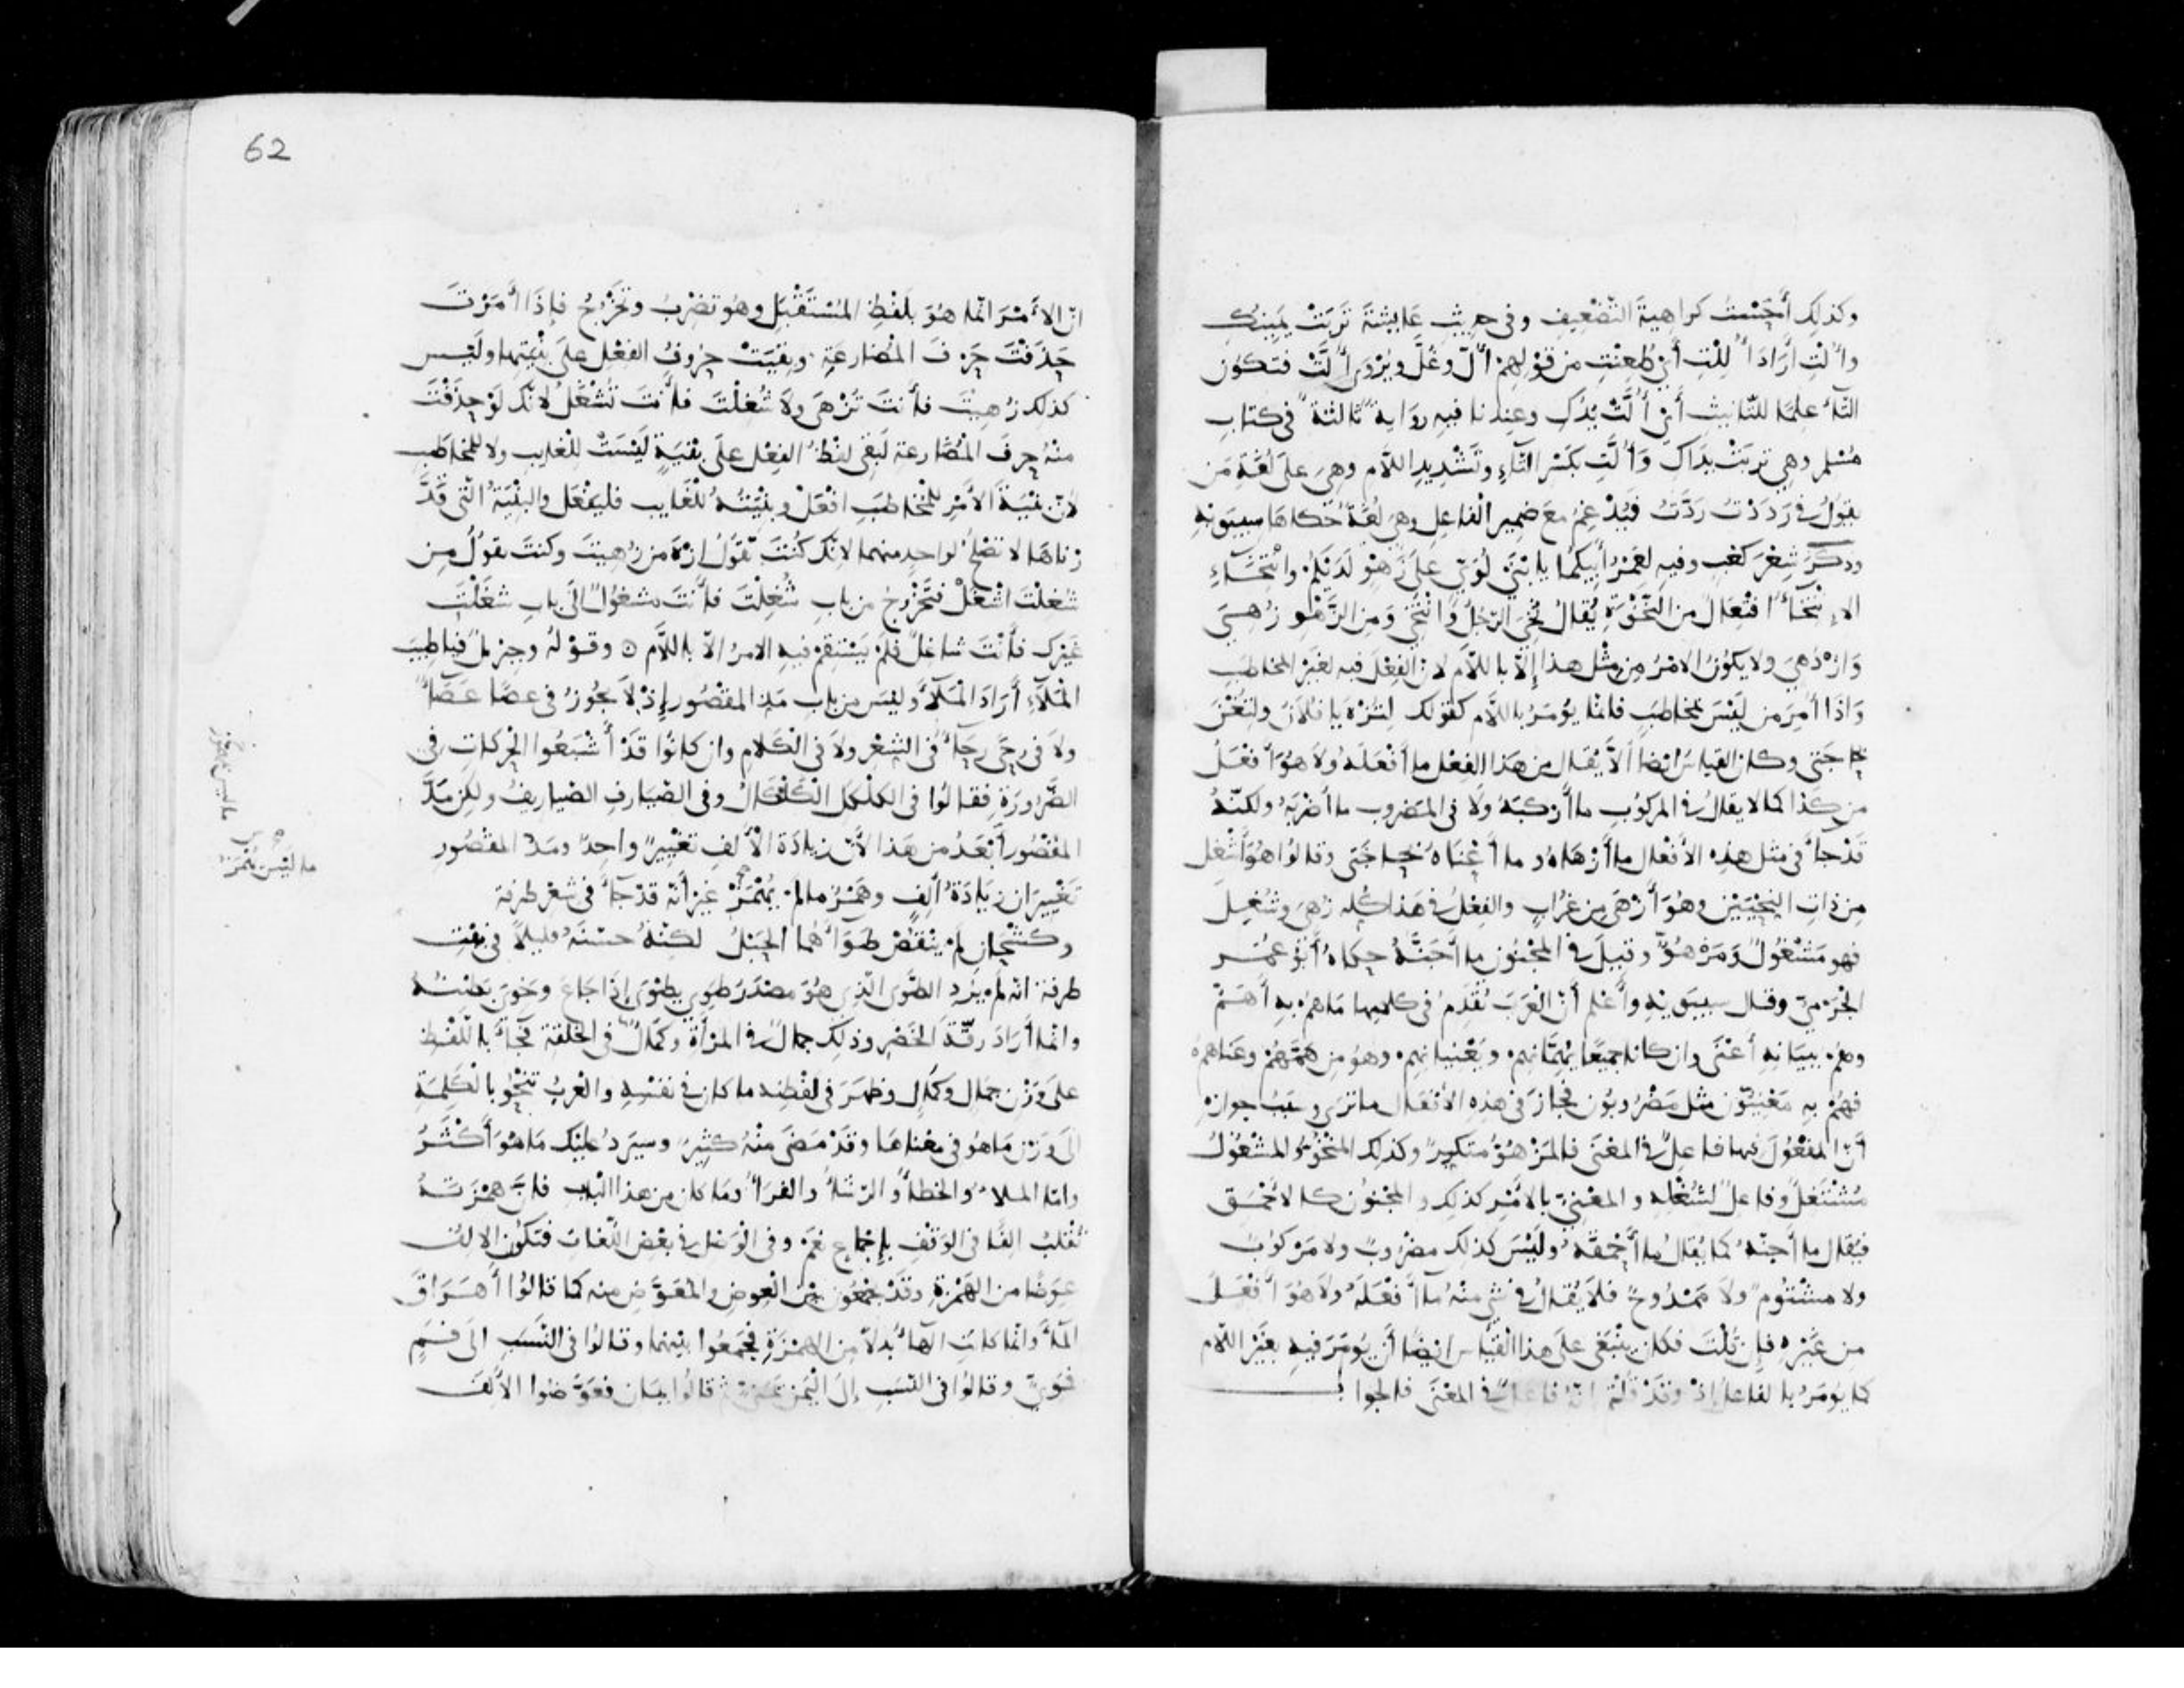 وكذلك أَحَسْتُ كراهيةَ التَّضْعِيفِ وفي حديثِ عَايشةَ تَرِبَتْ يَمِينُكِ
وأُلْتِ أَرَادَ أُلِلْتِ أَيْ طُعِنْتِ من قَوْلِهِمْ أُلَّ وغُلَّ ويُرْوَى أُلَّتْ فتكون
التاءُ علمًا للتأنيث أَيْ أُلَّتْ يَدُكِ وعندنا فيه رواية ثالثة في كتاب
مُسْلم وهي تربَتْ يداكِ وَأُلَّتِ بكسْر التَّاءِ وتَشْدِيدِ اللام وهي على لُغَةِ مَن
يقولُ في رَدَدْتُ رَدَّتُ فَيُدْغِمُ مَعَ ضميرِ الفاعِل وهي لغة حكاها سيبويه
وذكَرَ شِعْرَ كَعْبٍ وفيه لعَمْرُ أبيكما يا ابْنَيْ لُؤَيٍّ علَى زَهْوٍ لَدَيْكُمْ وانْتِخَاءِ
الإنتخَاءُ افْتِعَالٌ من النَّخْوَةِ يُقالُ نُخِيَ الرجلُ وَانْتَخَى وَمِن الزَّهْوِ زُهِيَ
وَازْدُهِيَ ولا يكُونُ الامْرُ مِن مثْلِ هذا إلّا باللَّام لانّ الفِعْلَ فيه لغَيْرِ المخاطَبِ
وَاذَا أُمِرَ مَن لَيْسَ بمخاطَبٍ فانما يُؤمَرُ باللام كقولك لتُزْهَ يا فُلَانُ ولتُعْنَ
بحاجَتي وكان القياسُ ايضا أَلَّا يُقَالَ مِن هَذا الفِعْل ما أَفْعَلَهُ ولا هُوَ أَفْعَلُ
من كَذا كما لا يقالُ في المركُوبِ ما أَرْكَبَهُ ولا في المَضروبِ ما أَضْرَبَهُ ولكنّهُ
قَدْ جاءَ في مثلِ هذِهِ الأفْعالِ ما أَزْهَاهُ وما أَعْنَاهُ بحاجَتي وقالُوا هُوَ أَشْغَلُ
مِن ذاتِ النِّحْيَيْن وهُوَ أَزْهَى مِن غُرابٍ والفِعْلُ في هَذا كلّه زُهِيَ وشُغِلَ
فهو مَشْغُولٌ وَمَزْهُوٌّ وقيلَ في المَجْنُونِ ما أَجَنَّهُ حكاهُ أَبُو عُمَر
الجَرْميّ وقال سيبَوَيْهِ واعْلم أنّ العَرَبَ تُقَدِّمُ في كلامِها مَا هُمْ بِهِ أَهَمُّ
وهُم ببيانه أعْنَى وان كانا جميعًا يُهِمّانِهِم ويَعْنِيانِهِم وهُوَ مِن هَمَّهُم وعَناهم
فهُمْ بِهِ مَعْنِيّون مثل مَضْرُوبُون فجازَ في هذِهِ الأفعَال ما ترَى وسَبَبُ جوازِهِ
أنّ المفعُولَ فيها فاعلٌ في المعْنَى فالمَزْهُوُّ مُتكبِّرٌ وكذلك المَنْخُوُّ والمشْغُولُ
مُشْتَغِلٌ وفاعلٌ لشُغْلِهِ والمعْنِيّ بالأمْرِ كذلك والمجْنُونُ كالأحْمَق
فيُقال ما أجنّهُ كما يُقالُ ما أَحْمَقَهُ ولَيْسَ كذلك مضرُوبٌ ولا مَرْكوبٌ
ولا مشْتُومٌ ولا مَمْدُوحٌ فلا يُقالُ في شيءٍ منْهُ مَا أَفْعَلَهُ ولا هُوَ أَفْعَلُ
من غَيْرِه فإن قُلْتَ فكان ينْبَغي على هذا القِيَاسِ ايضًا أنْ يُؤمَرَ فيهِ بغَيْرِ اللام
كما يؤمَرُ بالفاعلِ إذْ وقَدْ قُلْتَ انّه فاعلٌ في المعْنَى فالجواب
62
انّ الأَمْرَ انّما هُوَ بلَفْظِ المُسْتَقْبَل وهُو تضْرِبُ وتَخْرُجُ فإذَا أَمَرْتَ
حَذَفْتَ حَرْفَ المُضارعَةِ وبقيَتْ حُرُوفُ الفِعْلِ علَى بِنْيَتِها ولَيْسَ
كذلك زُهِيتَ فأنتَ تُزْهَى ولا شُغِلْتَ فأنْتَ تُشْغَلُ لانّك لَوْ حذَفْتَ
منْهُ حرفَ المُضَارعة لبَقِي لفظُ الفِعْل علَى بِنْيَةٍ لَيْسَتْ للغايبِ ولا للمُخاطَبِ
لأنّ بِنْيَةَ الأَمْرِ للمُخاطَبِ افْعَلْ وبِنْيَتُهُ للْغَايب فليَفْعَل والبِنْيَةُ الّتي قَدَّ
رْناها لا تصْلُحُ لواحدٍ منهما لانّك كُنْتَ تَقُولُ ازْهَ من زُهِيتَ وكنتَ تقولُ من
شُغِلْتَ اشْغَلْ فتَخْرُجُ من باب شُغِلْتَ فأنْتَ مشغُولٌ الَى بابِ شَغَلْتَ
غَيْرَك فأنْتَ شاغِلٌ فلَمْ يَسْتَقِمْ فيهِ الامرُ الّا باللّام ⊙ وقَوْلهُ وحِزْبُ أطِيبِ
المَلآءِ أَرَادَ المَلَأ وليْسَ مِن بابِ مَدِّ المقْصُورِ إذْ لا يجُوزُ في عصًا عَصَاءٌ
ولا في رحًى رحَاءٌ في الشِعْرِ ولا في الكَلَام وان كانُوا قَدْ أَشْبَعُوا الحركاتِ في
الضّرُورَةِ فقالُوا في الكَلْكَلِ الكَلْكَالُ وفي الصيَارفِ الصياريفُ ولكِن مَدُّ
المَقْصُورِ أبْعَدُ من هَذا لأنّ زيادَةَ الأَلِفِ تَغْيِيرٌ واحِدٌ ومَدُّ المقْصُورِ
تَغْيِيرَان زيَادَةُ أَلِفٍ وهَمْزُ ما لَمْ يُهْمَزْ غَيْرَ أَنّهُ قَدْ جاءَ في شِعْرِ طَرَفَةَ
وكشْحانِ لَمْ يَنْقُصْ طَوَاءَهُما الحَبَلُ لكِنّهُ حسّنَهُ قليلًا في بيْتِ
طَرفة انّه لَمْ يُرِدِ الطَّوَى الّذي هُوَ مصْدَرُ طَوِيَ يطْوَى إذَا جَاعَ وخَوِيَ بَطْنُهُ
وانّما أرَادَ رقّةَ الخَصْرِ وذلك جمَالٌ في المرْأةِ وكمَالٌ في الخلقة فجآءَ باللّفظِ
علَى وَزْن جَمَال وكمَال وظهَرَ في لَفْظِه ما كان في نفْسِهِ والعَربُ تنْحُو بالكلمَةِ
إلَى وزْن ما هُو في معْناها وقَدْ مَضَى منْهُ كثيرٌ وسيَرِدُ عليْك مَا هُوَ أَكْثَرُ
وامّا الملأُ والخطأُ والرشَأُ والفرَأُ ومَا كان مِن هذا البَابِ فإنّ هَمْزَتَهُ
تُقْلَبُ الفًا في الوَقْفِ بإجْماعٍ نعَمْ وفي الوَصْل في بعْضِ اللّغاتِ فتكُون الالِفُ
عِوَضًا من الهَمْزةِ وقَدْ يجْمَعُون بَيْن العِوضِ والمُعَوَّضِ منه كما قالُوا أَهْرَاقَ
المَاءَ وانّما كانتِ الهاءُ بدلًا مِن الهمْزَةِ فجَمَعُوا بينَهما وقالُوا في النسَبِ الى فَمٍ
فَمَوِيٌّ وقالُوا في النسَبِ إلَى اليَمَن يَمَنيّ ثمّ قالُوا يمَانٍ فعَوَّضُوا الأَلِفَ
ما ليس بمهموز
ما لَيْسَ بهمْزة